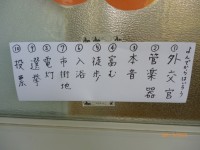 よんでからはろう
①外交官
②管楽器
③本音
④富む
⑤徒歩
⑥入浴
⑦市街地
⑧電灯
⑨選挙
⑩投票